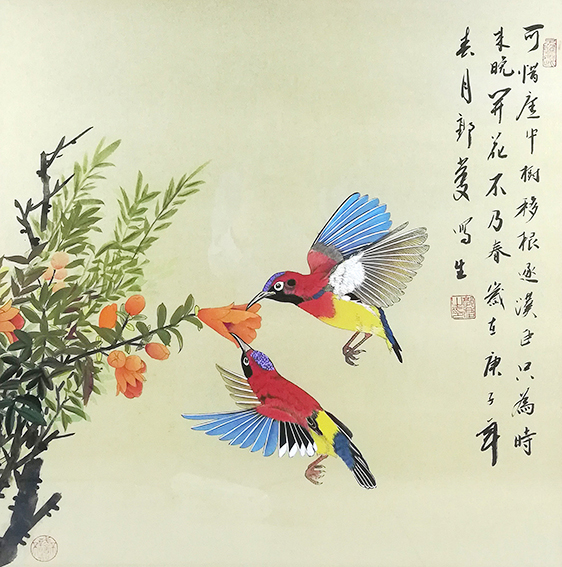 可惜庭中樹移根逐漢臣只為時
来晚開花不及春歲在庚子年
春月郭寫生